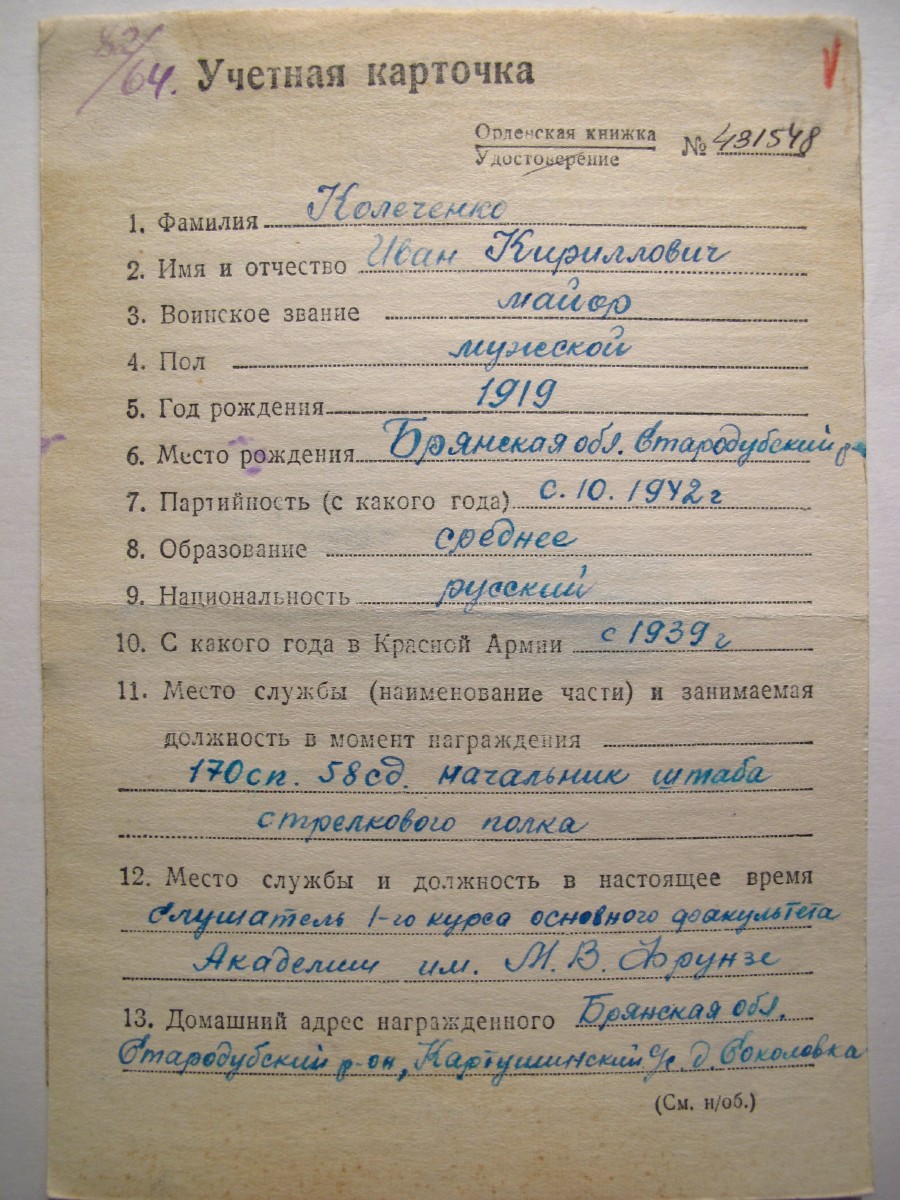 82/64. Учетная карточка
Орденская книжка
Удостоверение
№ 431548
1. Фамилия Колеченко
2. Имя и отчество Иван Кириллович
3. Воинское звание майор
4. Пол мужской
5. Год рождения 1919
6. Место рождения Брянская обл. Стародубский р
7. Партийность (с какого года) с. 10. 1942 г
8. Образование среднее
9. Национальность русский
10. С какого года в Красной Армии с 1939 г
11. Место службы (наименование части) и занимаемая
должность в момент награждения
170 сп. 58 сд. начальник штаба
стрелкового полка
12. Место службы и должность в настоящее время
слушатель 1-го курса основного факультета
Академии им. М. В. Фрунзе
13. Домашний адрес награжденного Брянская обл.
Стародубский р-он, Картушинский с/с. д. Соколовка
(См. н/об.)